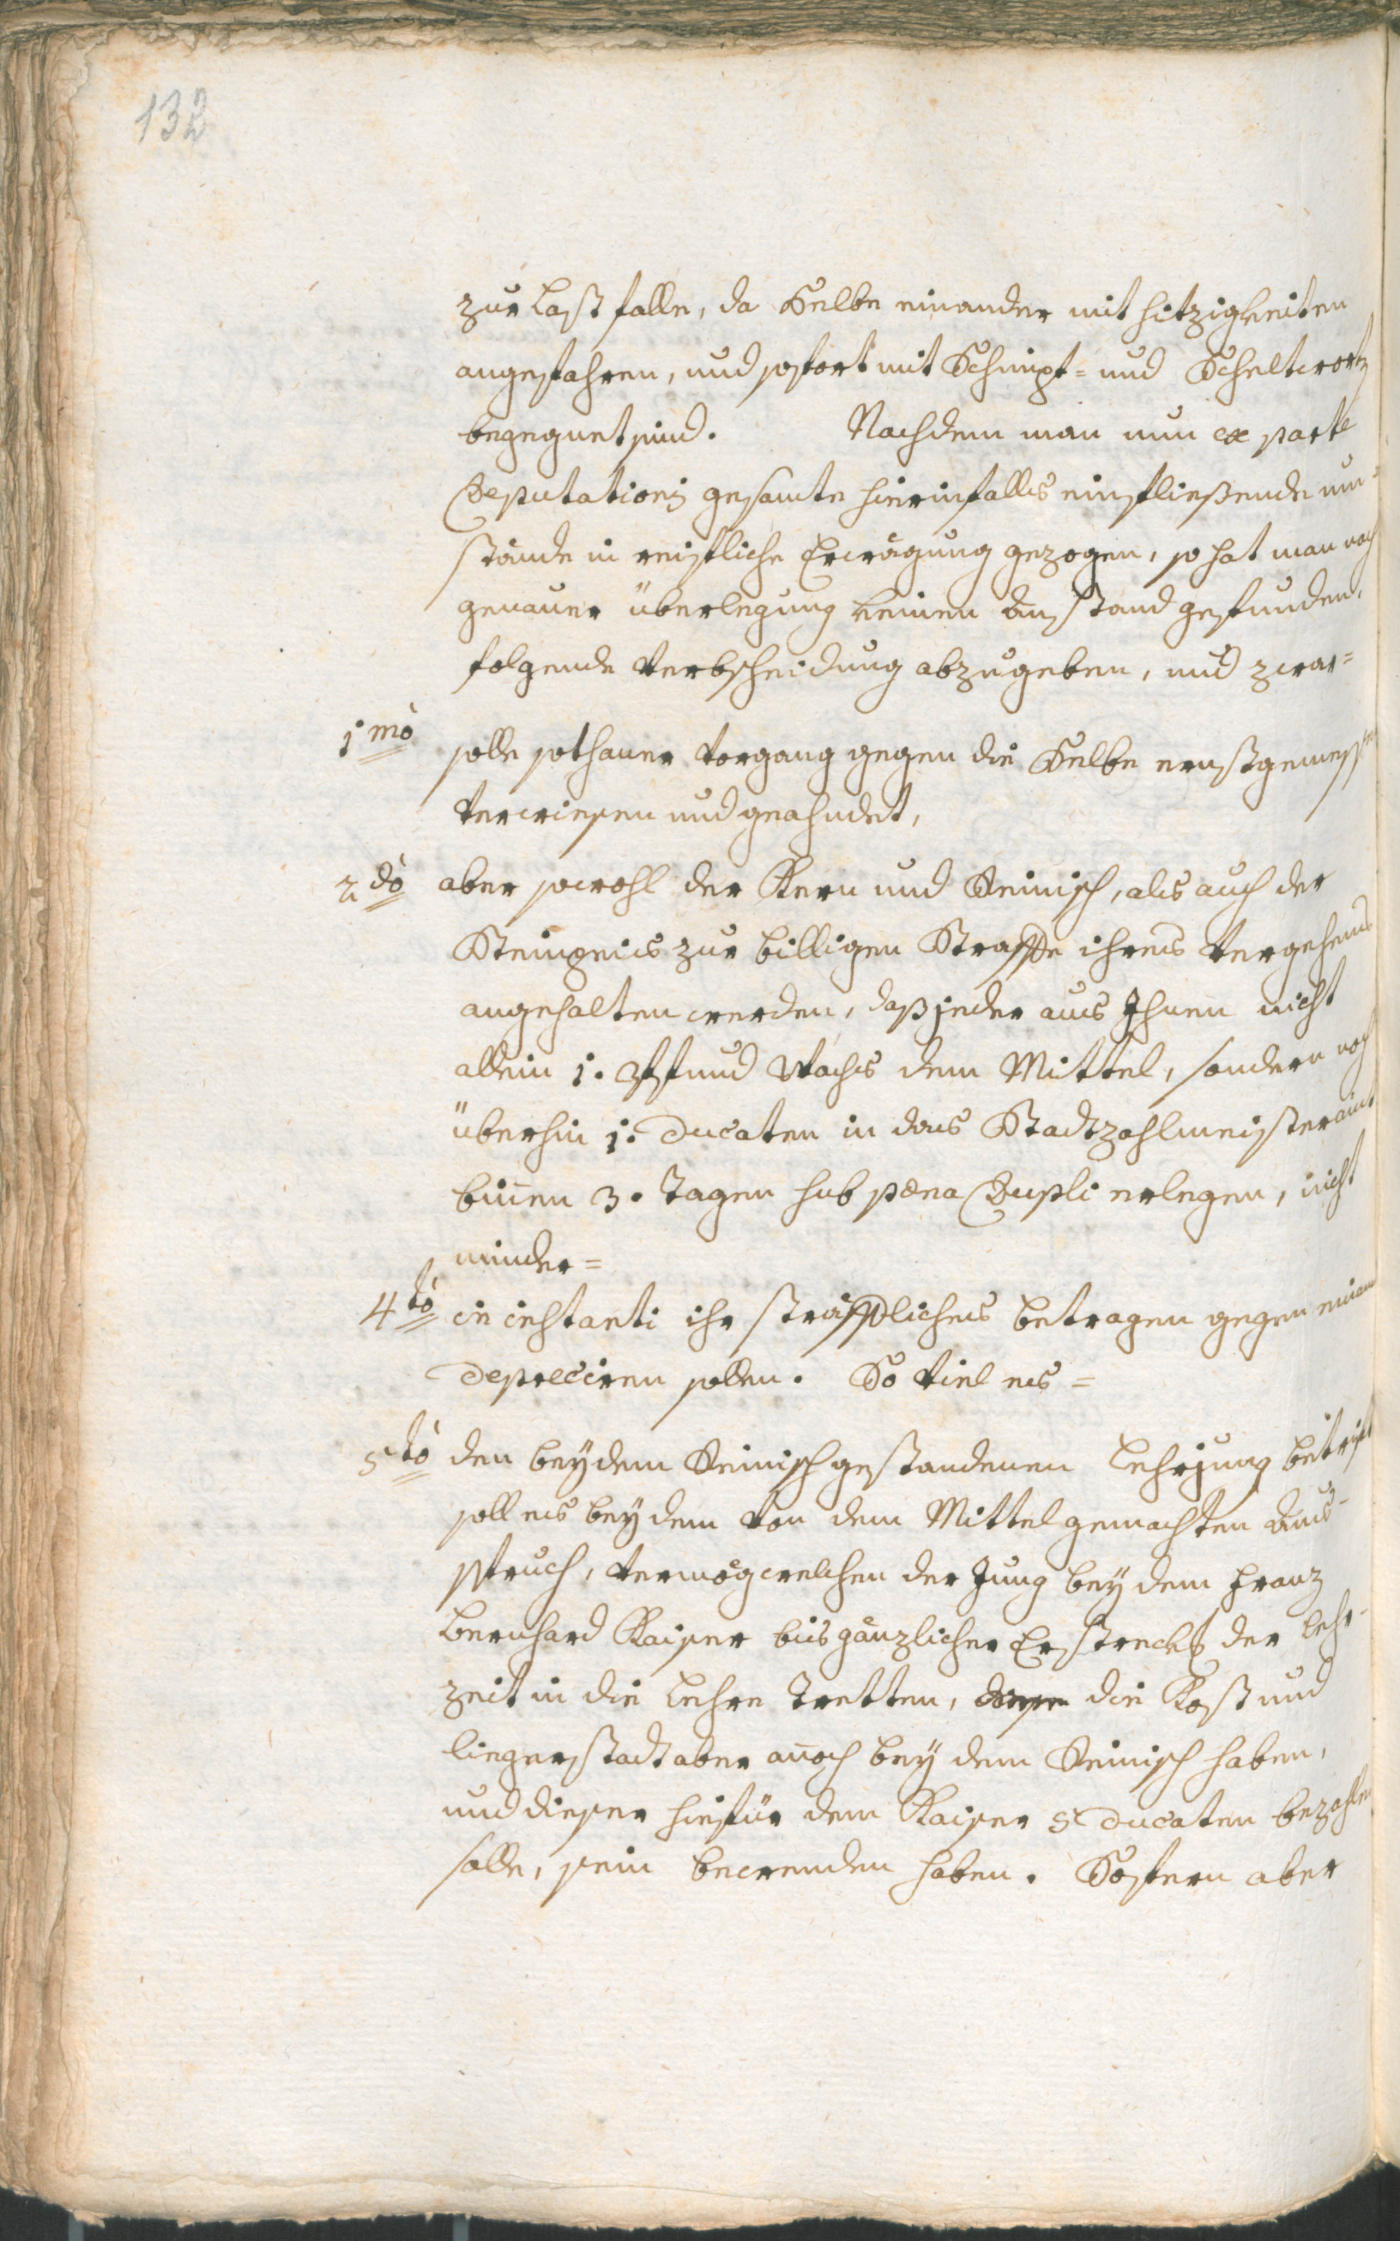 132
zur Last falle, da Selbe einander mit hitzigkeiten
angefahren, und sofort mit Schimpf= und Scheltwort
begegnet sind. Nachdem man nun ex parte
Deputationis gesamte hierinfalls einfließende um=
stände in reifliche Erwägung gezogen, so hat man nach
genauer überlegung keinen Anstand gefunden,
folgende Verbscheidung abzugeben, und zwar=
1mò solle sothaner Vorgang gegen die Selbe ernstgemessen
verwiesen und geahndet,
2dò aber sowohl der Kern und Reinisch, als auch der
Steinzeis zur billigen Straffe ihres Vergehens
angehalten werden, daß jeder aus Ihnen nicht
allein 1. Pfund Wachs dem Mittel, sondern noch
überhin 1. Ducaten in das Stadtzahlmeisteramt
binnen 3. Tagen sub pœna Dupli erlegen, nicht
minder=
4tò in instanti ihr sträffliches betragen gegen einan
depreciren sollen. So viel es=
5tò den bey dem Reinisch gestandenen Lehrjung betrift
soll es bey dem von dem Mittel gemachten Aus=
spruch, vermög welchen der Jung bey dem Franz
Bernhard Kaiser bis gänzlicher Erstreckg der Lehr=
zeit in die Lehre Tretten, die Kost und
liegerstadt aber annoch bey dem Reinisch haben,
und dieser hiefür dem Kaiser 5 Ducaten bezahlen
solle, sein bewenden haben. Sofern aber